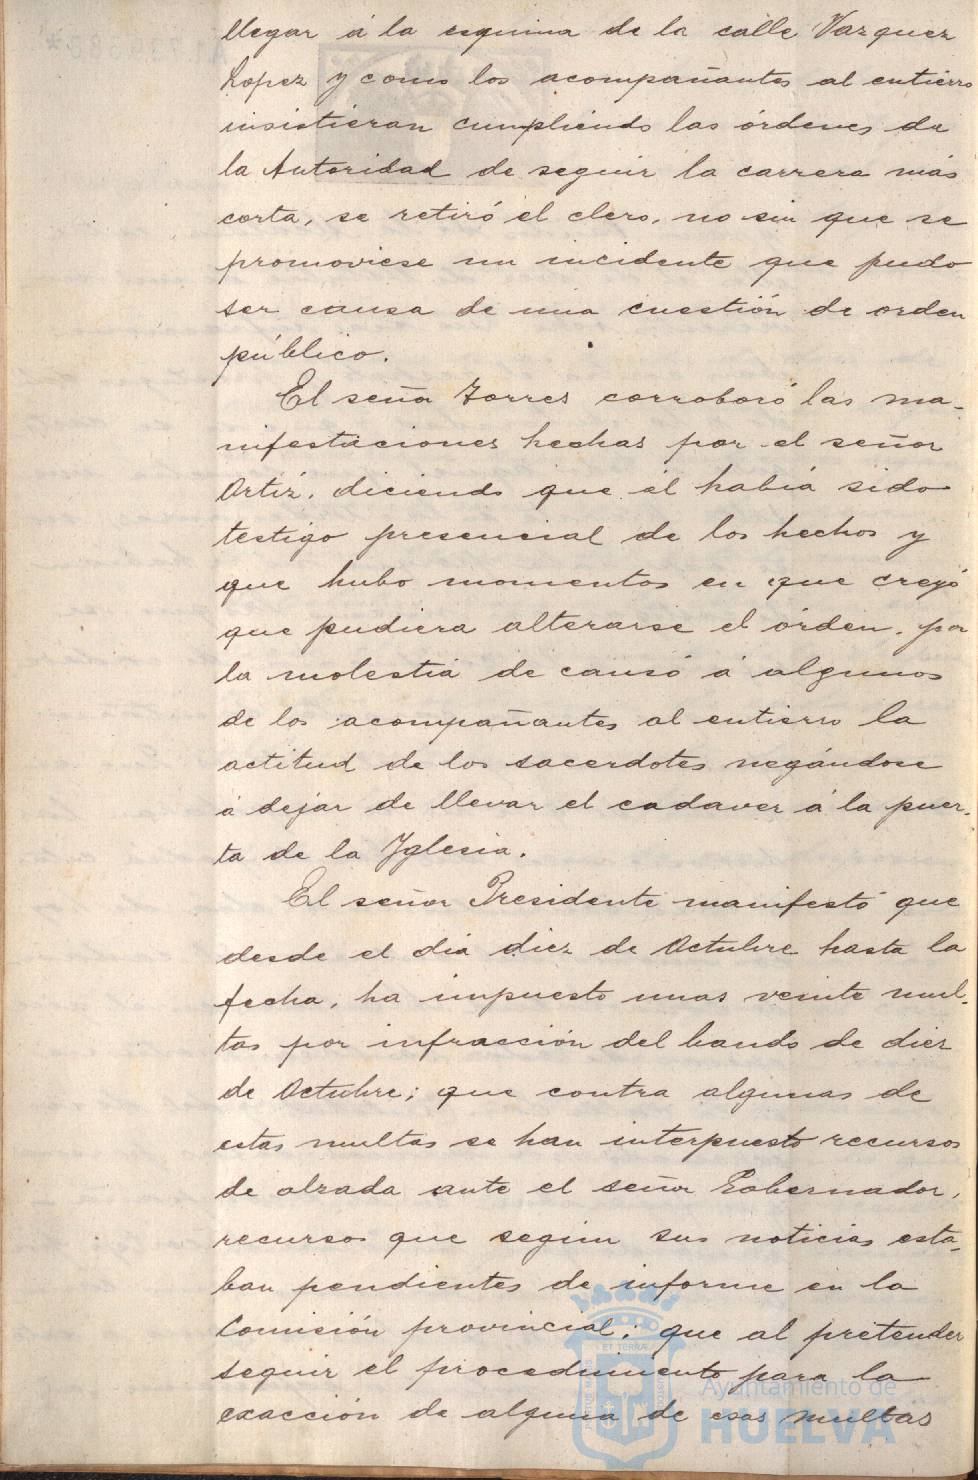 llegar á la esquina de la calle Vazquez
Lopez y como los acompañantes al entierro
insistieran cumpliendo las órdenes de
la Autoridad de seguir la carrera más
corta, se retiró el clero, no sin que se
promoviese un incidente que pudo
ser causa de una cuestión de orden
público.
El señor Torres corroboró las ma-
nifestaciones hechas por el señor
Ortiz, diciendo que él había sido
testigo presencial de los hechos y
que hubo momentos en que creyó
que pudiera alterarse el órden, por
la molestia de causó á algunos
de los acompañantes al entierro la
actitud de los sacerdotes negándose
á dejar de llevar el cadaver á la puer-
ta de la Yglesia.
El señor Presidente manifestó que
desde el dia diez de Octubre hasta la
fecha, ha impuesto unas veinte mul-
tas por infracción del bando de diez
de Octubre; que contra algunas de
estas multas se han interpuesto recursos
de alzada ante el señor Gobernador,
recursos que segun sus noticias esta-
ban pendientes de informe en la
Comisión provincial; que al pretender
seguir el procedimiento para la
exacción de alguna de esas multas
Ayuntamiento de
HUELVA